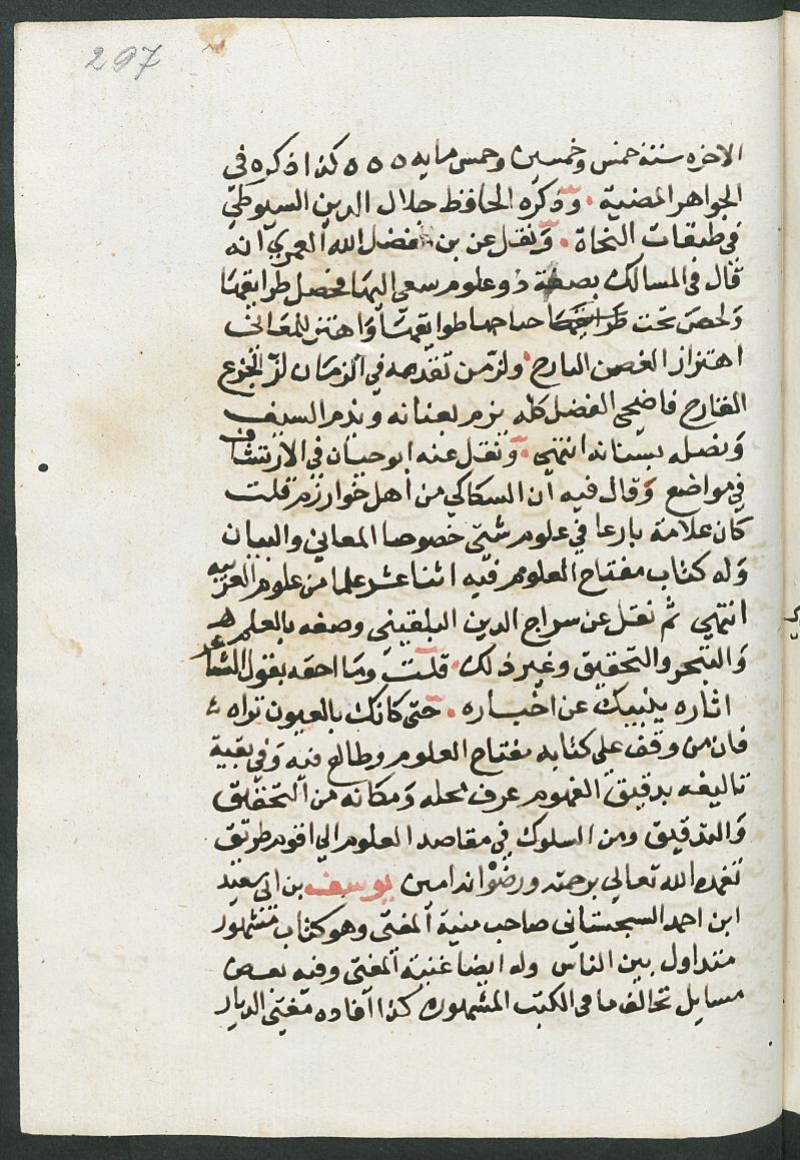 297
الاخره سنة خمس وخمسين وخمس مايه ٥٥٥ كذا ذكره في
الجواهر المضية وذكره الحافظ جلال الدين السيوطي
في طبقات النحاة ونقل عن بن فضل الله العمري انه
قال في المسالك بصفة ذو علوم سعى اليها فحصل طرايقها
ولخص تحت طوايقها واهتز للمعاني
اهتزاز الغصن البارح ولز من تقدمه في الزمان لز الجذع
القارح فاضحى الفضل كله يزم بعنانه ويذم السيف
ونصله بسنانه انتهي ونقل عنه ابو حيان في الارتشاف
في مواضع وقال فيه ان السكاكي من اهل خوارزم قلت
كان علامة بارعا في علوم شتى خصوصا المعاني والبيان
وله كتاب مفتاح العلوم فيه اثنا عشر علما من علوم العربيه
انتهي ثم نقل عن سراج الدين البلقيني وصفه بالعلم
والتبحر والتحقيق وغير ذلك قلت وما احقه بقول الشاعر
اثاره ينبيك عن اخباره حتى كانك بالعيون تراه
فان من وقف على كتابه مفتاح العلوم وطالع فيه وفي بقية
تاليفه بدقيق الفهوم عرف محله ومكانه من التحقيق
والتدقيق ومن السلوك في مقاصد العلوم الي اقوم طريق
تغمده الله تعالي برحمته ورضوانه امين يوسف بن ابي سعيد
ابن احمد السجستاني صاحب منية المفتى وهو كتاب مشهور
متداول بين الناس وله ايضا غنية المفتى وفيه بعض
مسايل تخالف ما في الكتب المشهورة كذا آفاده مفتي الديار